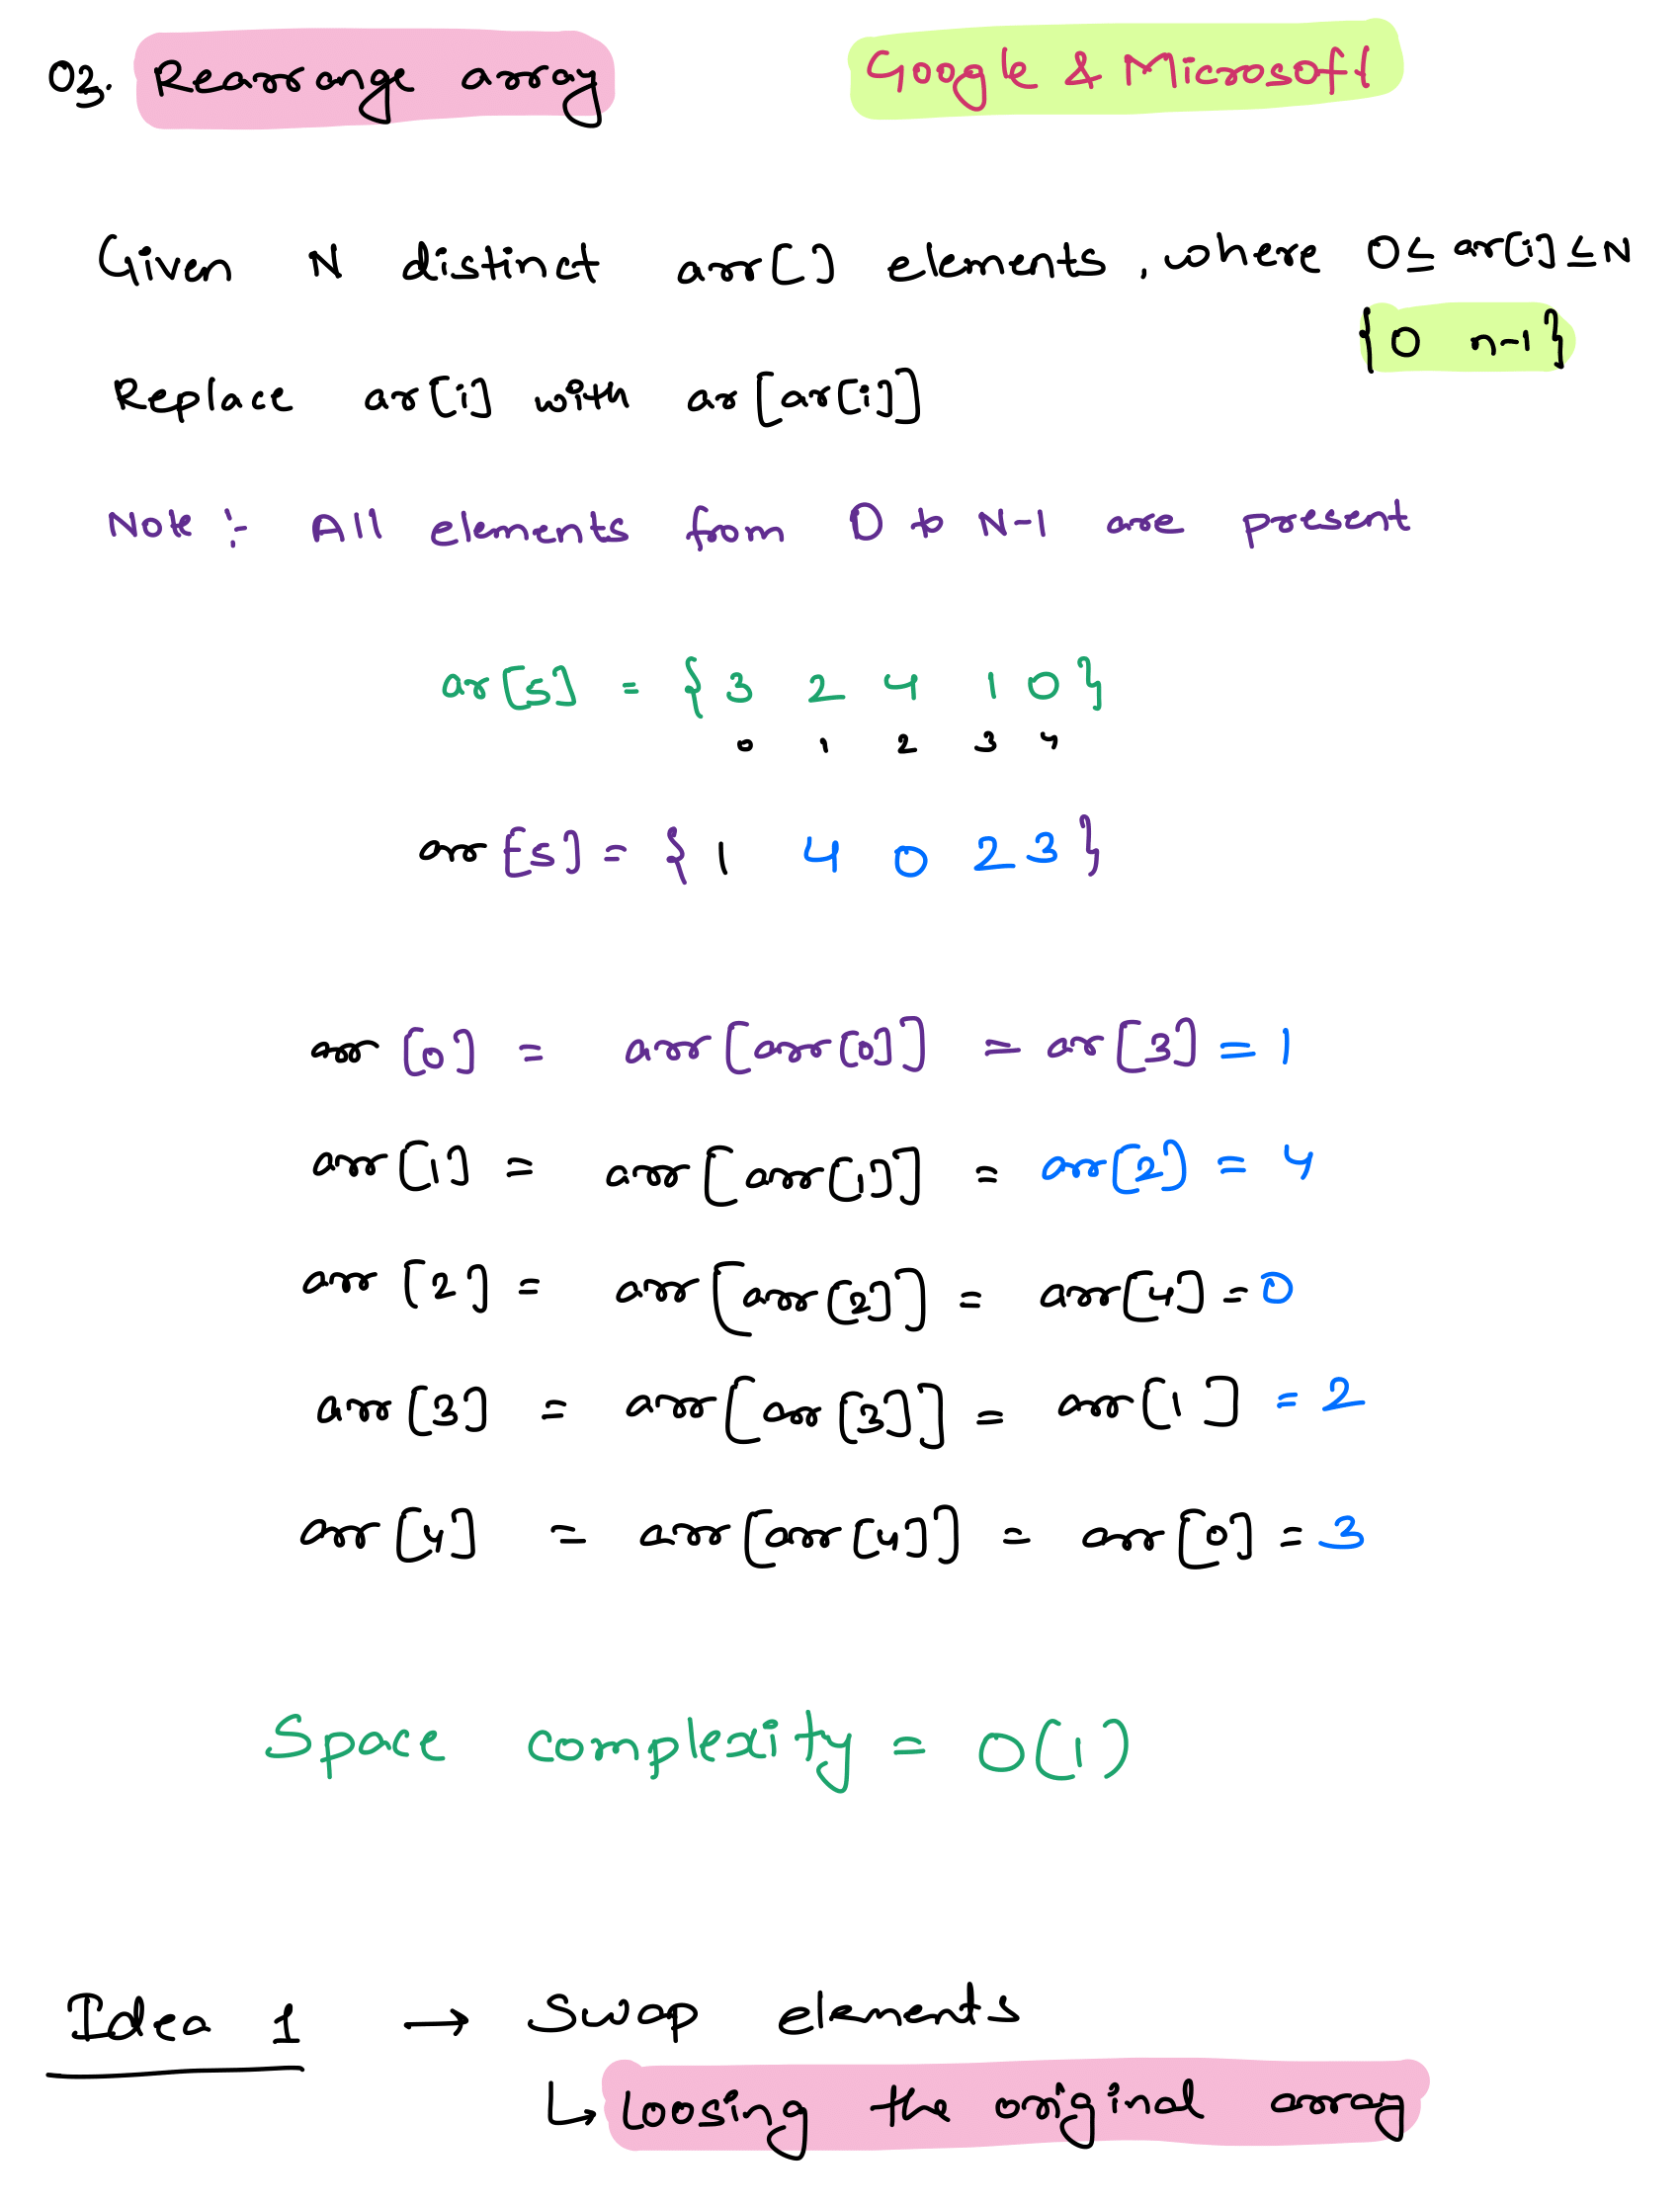 Q3. Rearrange array Google & Microsoft
Given N distinct arr[] elements, where 0≤ ar[i] ≤N
{0 n-1}
Replace ar[i] with ar[ar[i]]
Note :- All elements from 0 to N-1 are present
ar[5] = {3 2 4 1 0}
0 1 2 3 4
arr[5] = {1 4 0 2 3}
arr[0] = arr[arr[0]] = ar[3] = 1
arr[1] = arr[arr[1]] = arr[2] = 4
arr[2] = arr[arr[2]] = arr[4] = 0
arr[3] = arr[arr[3]] = arr[1] = 2
arr[4] = arr[arr[4]] = arr[0] = 3
Space complexity = O(1)
Idea 1 → Swap elements
↳ loosing the original array